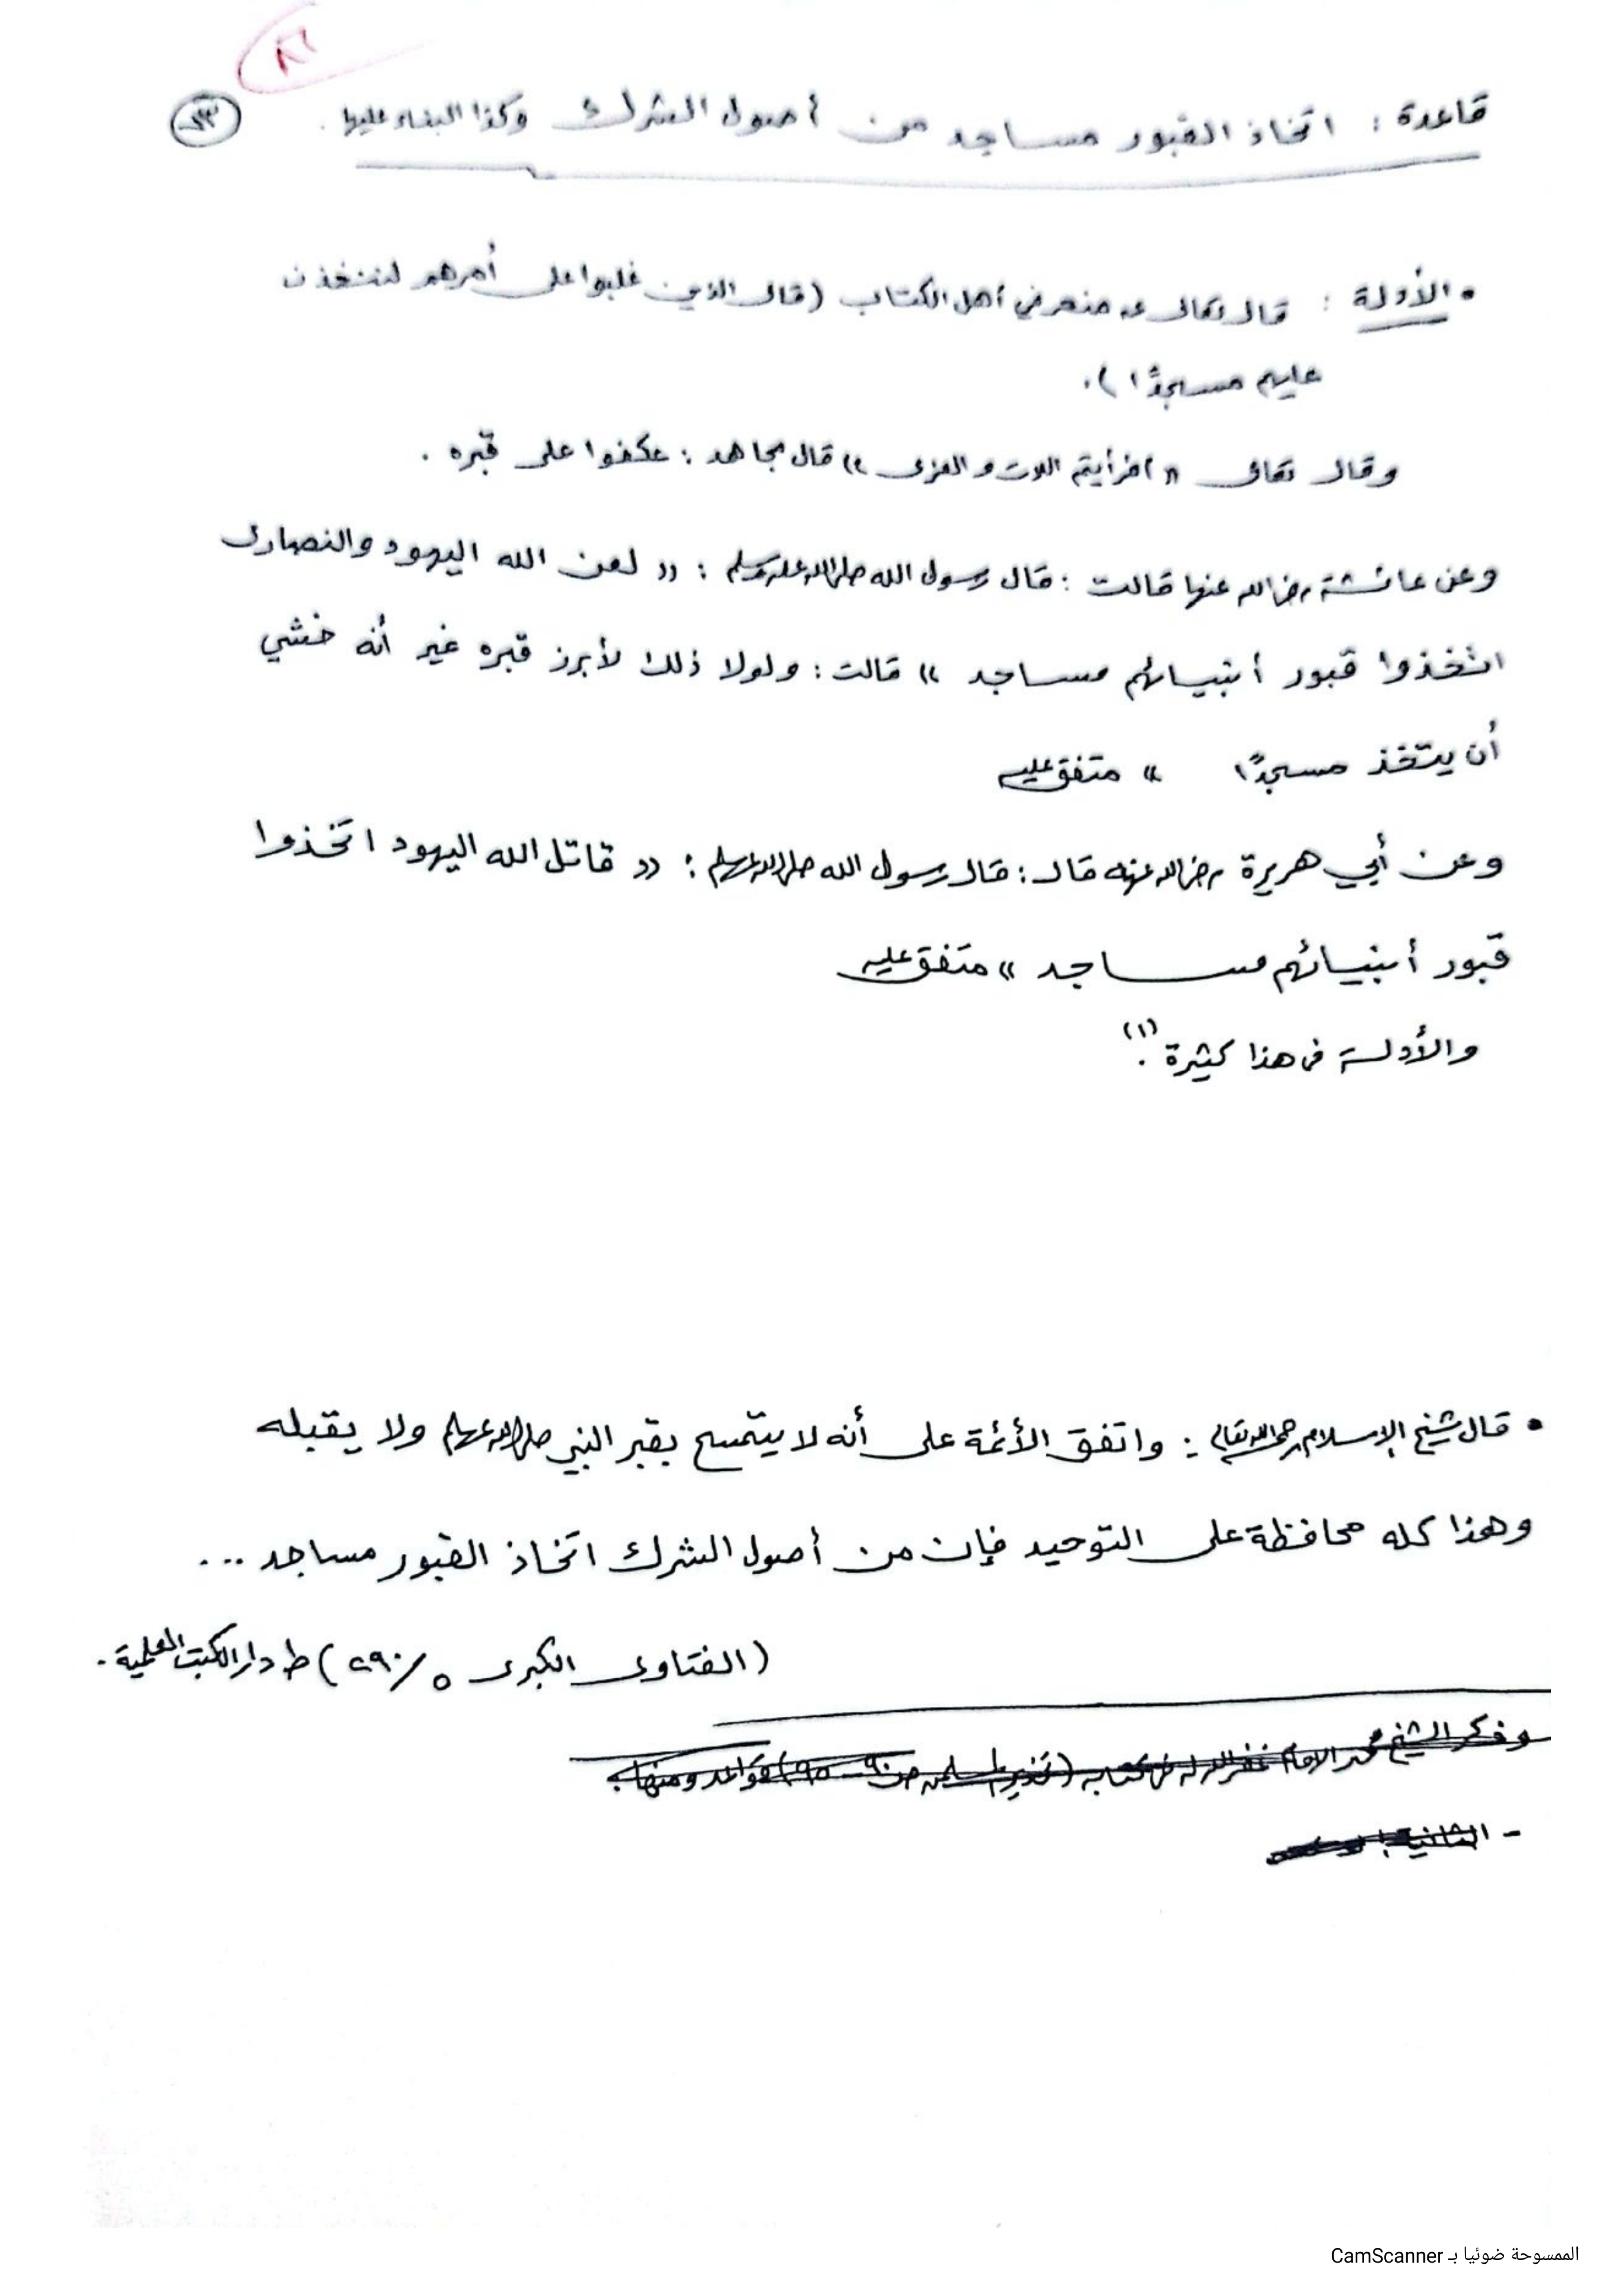 قاعدة : اتخاذ القبور مساجد من أصول الشرك وكذا البناء عليها .
• الأدلة : قال تعالى عن أهل الكتاب (قال الذين غلبوا على أمرهم لنتخذن
عليهم مسجدًا ).
وقال تعالى « أفرأيتم اللات والعزى » قال مجاهد : عكفوا على قبره .
وعن عائشة رضي الله عنها قالت : قال رسول الله صلى الله عليه وسلم : « لعن الله اليهود والنصارى
اتخذوا قبور أنبيائهم مساجد » قالت : ولولا ذلك لأبرز قبره غير أنه خشي
أن يتخذ مسجدًا » متفق عليه
وعن أبي هريرة رضي الله عنه قال : قال رسول الله صلى الله عليه وسلم : « قاتل الله اليهود اتخذوا
قبور أنبيائهم مساجد » متفق عليه
والأدلة في هذا كثيرة (١) .
• قال شيخ الإسلام رحمه الله تعالى : واتفق الأئمة على أنه لا يتمسح بقبر النبي صلى الله عليه وسلم ولا يقبله
وهذا كله محافظة على التوحيد فإن من أصول الشرك اتخاذ القبور مساجد ...
(الفتاوى الكبرى ٥/٢٩٠) ط دار الكتب العلمية .
وذكر الشيخ محمد الإمام غفر الله له في كتابه (تحذير المسلمين ص٩٠ - ٩٥) قواعد ومنها :
- الثانية :
الممسوحة ضوئيا بـ CamScanner